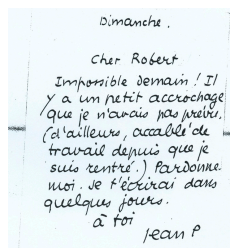 Dimanche.
Cher Robert
Impossible Demain ! Il
y a un petit accrochage
que je n'avais pas prévu.
(d'ailleurs, accablé de
travail depuis que je
suis rentré.) Pardonne
moi. Je t'écrirai dans
quelques jours.
à toi
Jean P